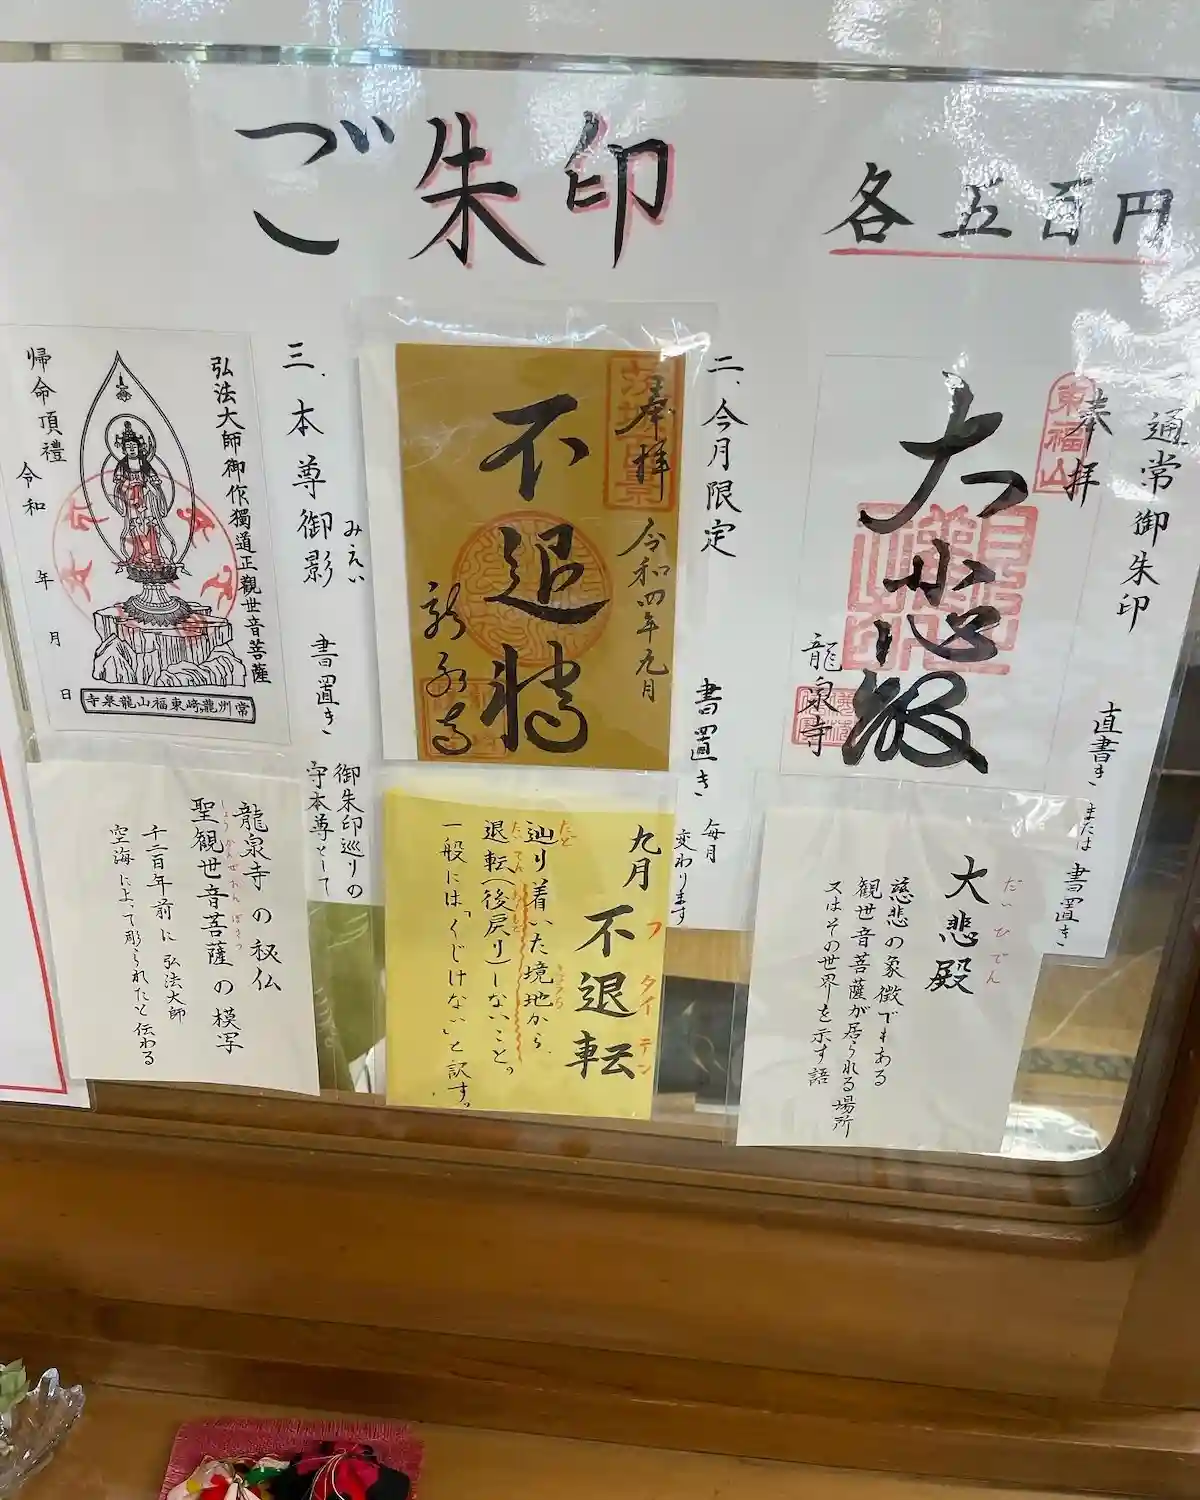 ご朱印
各五百円
通常御朱印
直書き または 書置き
奉拝
東福山
大悲殿
龍泉寺
大悲殿
だいひでん
慈悲の象徴でもある
観世音菩薩が居られる場所
又はその世界を示す語
二、今月限定
書置き
毎月
変わります
奉拝
令和四年九月
不退転
九月
不退転
フタイテン
辿り着いた境地から、
退転(後戻り)しないこと。
一般には「くじけない」と訳す。
三、本尊御影
みえい
書置き
御朱印巡りの
守本尊として
弘法大師御作獨道正觀世音菩薩
帰命頂禮
令和 年 月 日
常州龍崎東福山龍泉寺
龍泉寺の秘仏
聖観世音菩薩の模写
しょうかんぜおんぼさつ
千二百年前に弘法大師
空海によって彫られたと伝わる